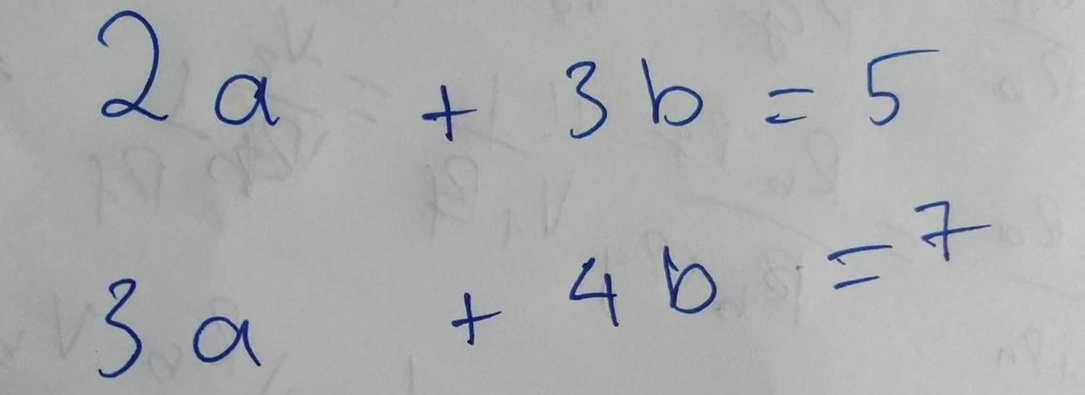 2a + 3b = 5
3a + 4b = 7